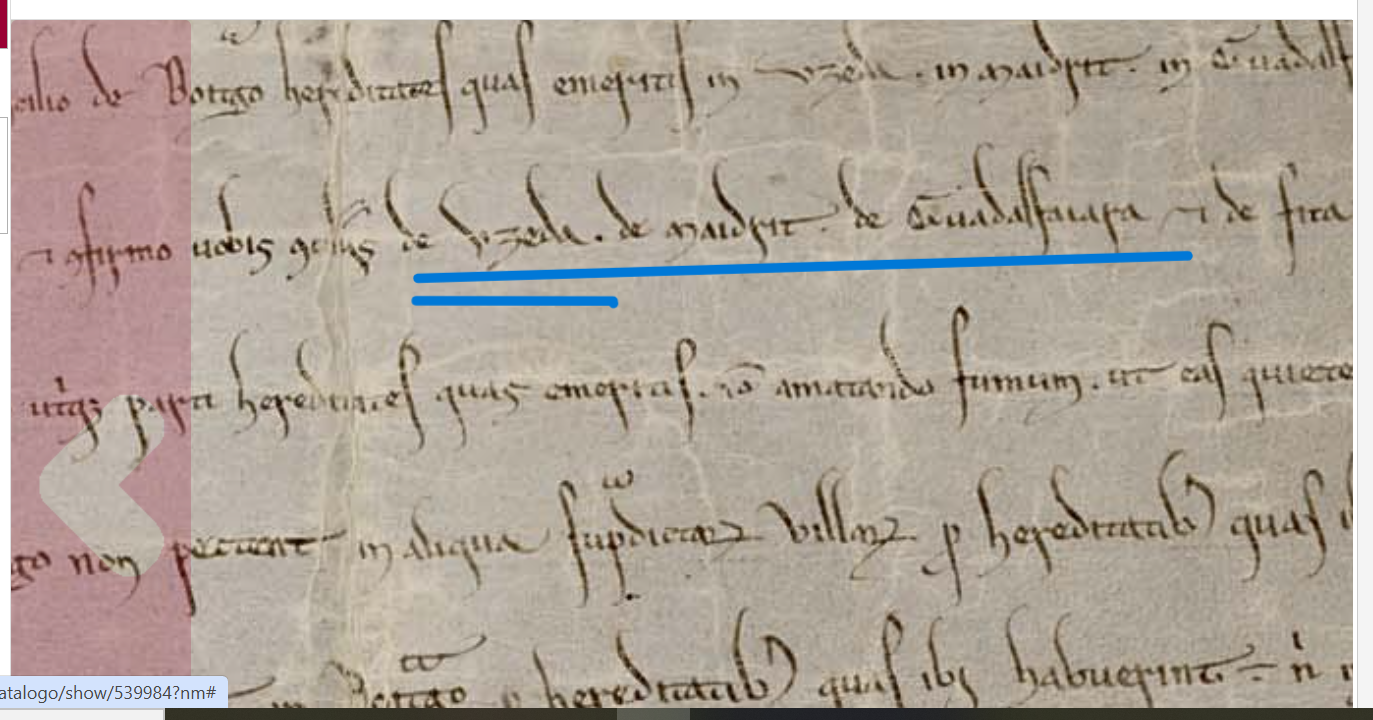 cilio de Boitgo hereditates quas emeritis in vzeda . in maidrit . in Guadalf
⁊ ꝯfirmo uobis de vzeda . de maidrit . de Guadalfaiara ⁊ de fita
utrqꝫ parti hereditates quas emeritis . amatando fumum . ut eas quiete
go non pectent in aliqua sup̄dictaꝝ villaꝝ ꝑ hereditatib quas
hereditatib quas ibi habuerint
atalogo/show/539984?nm#